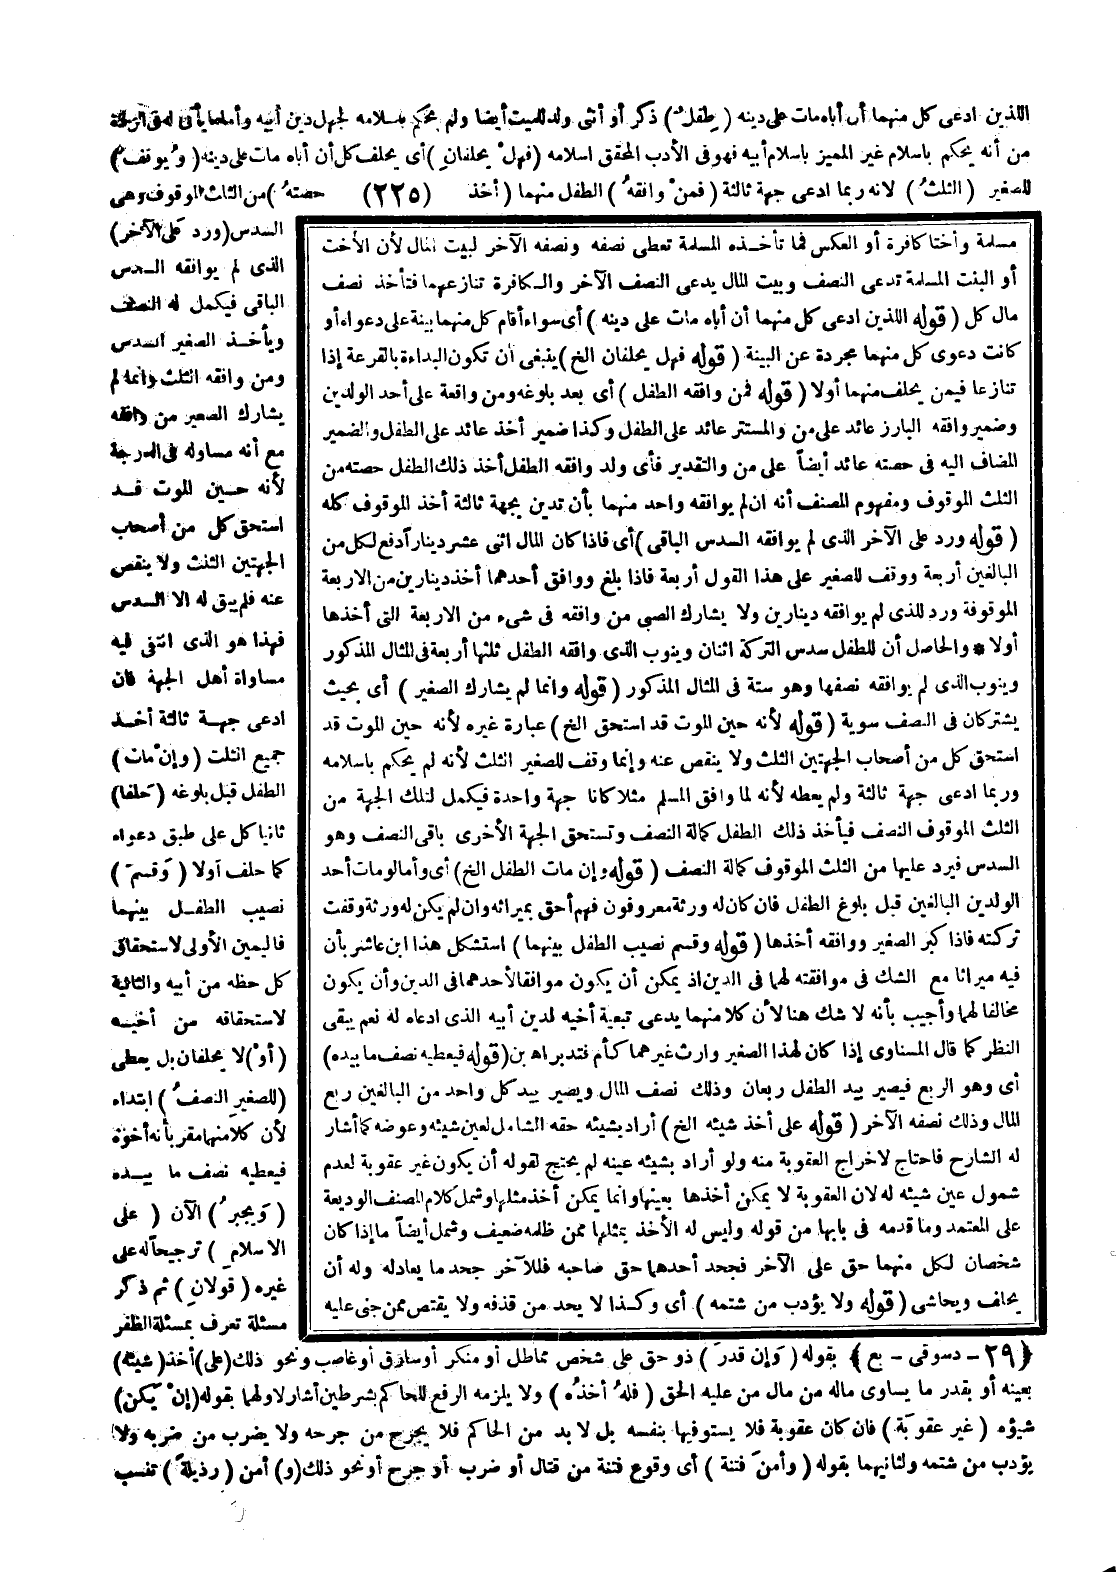 اللذين ادعى كل منهما أن أباه مات على دينه ( طفل ) ذكر أو أنثى ولد للميت أيضا ولم يحكم باسلامه لجهل دين أبيه وأما ما يأتى له فى الردة
من أنه يحكم باسلام غير المميز باسلام أبيه فهو فى الأدب المحقق اسلامه ( فهل يحلفان ) أى يحلف كل أن أباه مات على دينه ( و يوقف )
للصغير ( الثلث ) لانه ربما ادعى جهة ثالثة ( فمن وافقه ) الطفل منهما ( أخذ (٢٢٥) حصته ) من الثلث الموقوف وهى
السدس ( ورد على الآخر )
الذى لم يوافقه السدس
الباقى فيكمل له النصف
ويأخذ الصغير السدس
ومن وافقه الثلث وانما لم
يشارك الصغير من وافقه
مع أنه مساو له فى الدرجة
لأنه حين الموت قد
استحق كل من أصحاب
الجهتين الثلث ولا ينقص
عنه فلم يبق له الا السدس
فهذا هو الذى انتفى فيه
مساواة أهل الجهة فان
ادعى جهة ثالثة أخذ
جميع الثلث ( وإن مات )
الطفل قبل بلوغه ( حلفا )
ثانيا كل على طبق دعواه
كما حلف أولا ( وقسم )
نصيب الطفل بينهما
فاليمين الأولى لاستحقاق
كل حظه من أبيه والثانية
لاستحقاقه من أخيه
( أو ) لا يحلفان بل يعطى
( للصغير النصف ) ابتداء
لأن كلا منهما مقر بأنه أخوه
فيعطيه نصف ما بيده
( ويجبر ) الآن ( على
الاسلام ) ترجيحا له على
غيره ( قولان ) ثم ذكر
مسئلة تعرف بمسئلة الظفر
مسلمة وأختا كافرة أو العكس فما تأخذه المسلمة تعطى نصفه ونصفه الآخر لبيت المال لأن الأخت
أو البنت المسلمة تدعى النصف وبيت المال يدعى النصف الآخر والكافرة تنازعهما فتأخذ نصف
مال كل ( قوله اللذين ادعى كل منهما أن أباه مات على دينه ) أى سواء أقام كل منهما بينة على دعواه أو
كانت دعوى كل منهما مجردة عن البينة ( قوله فهل يحلفان الخ ) ينبغى أن تكون البداءة بالقرعة إذا
تنازعا فيمن يحلف منهما أولا ( قوله فمن وافقه الطفل ) أى بعد بلوغه ومن واقعة على أحد الولدين
وضمير وافقه البارز عائد على من والمستتر عائد على الطفل وكذا ضمير أخذ عائد على الطفل والضمير
المضاف اليه فى حصته عائد أيضاً على من والتقدير فأى ولد وافقه الطفل أخذ ذلك الطفل حصته من
الثلث الموقوف ومفهوم المصنف أنه ان لم يوافقه واحد منهما بأن تدين بجهة ثالثة أخذ الموقوف كله
( قوله ورد على الآخر الذى لم يوافقه السدس الباقى ) أى فاذا كان المال اثنى عشر دينارا دفع لكل من
البالغين أربعة ووقف للصغير على هذا القول أربعة فاذا بلغ ووافق أحدهما أخذ دينارين من الاربعة
الموقوفة ورد للذى لم يوافقه دينارين ولا يشارك الصبى من وافقه فى شىء من الاربعة التى أخذها
أولا * والحاصل أن للطفل سدس التركة اثنان وينوب الذى وافقه الطفل ثلثها أربعة فى المثال المذكور
وينوب الذى لم يوافقه نصفها وهو ستة فى المثال المذكور ( قوله وانما لم يشارك الصغير ) أى بحيث
يشتركان فى النصف سوية ( قوله لأنه حين الموت قد استحق الخ ) عبارة غيره لأنه حين الموت قد
استحق كل من أصحاب الجهتين الثلث ولا ينقص عنه وإنما وقف للصغير الثلث لأنه لم يحكم باسلامه
وربما ادعى جهة ثالثة ولم يعطه لأنه لما وافق المسلم مثلا كانا جهة واحدة فيكمل لتلك الجهة من
الثلث الموقوف النصف فيأخذ ذلك الطفل كمالة النصف وتستحق الجهة الأخرى باقى النصف وهو
السدس فيرد عليها من الثلث الموقوف كمالة النصف ( قوله وإن مات الطفل الخ ) أى وأما لو مات أحد
الولدين البالغين قبل بلوغ الطفل فان كان له ورثة معروفون فهم أحق بميراثه وان لم يكن له ورثة وقفت
تركته فاذا كبر الصغير ووافقه أخذها ( قوله وقسم نصيب الطفل بينهما ) استشكل هذا ابن عاشر بأن
فيه ميراثا مع الشك فى موافقته لهما فى الدين اذ يمكن أن يكون موافقا لأحدهما فى الدين وأن يكون
مخالفا لهما وأجيب بأنه لا شك هنا لأن كلا منهما يدعى تبعية أخيه لدين أبيه الذى ادعاه له نعم يبقى
النظر كما قال المسناوى إذا كان لهذا الصغير وارث غيرهما كأم فتدبر اه بن ( قوله فيعطيه نصف ما بيده )
أى وهو الربع فيصير بيد الطفل ربعان وذلك نصف المال ويصير بيد كل واحد من البالغين ربع
المال وذلك نصفه الآخر ( قوله على أخذ شيئه الخ ) أراد بشيئه حقه الشامل لعين شيئه وعوضه كما أشار
له الشارح فاحتاج لاخراج العقوبة منه ولو أراد بشيئه عينه لم يحتج لقوله أن يكون غير عقوبة لعدم
شمول عين شيئه له لان العقوبة لا يمكن أخذها بعينها وانما يمكن أخذ مثلها وشمل كلام المصنف الوديعة
على المعتمد وما قدمه فى بابها من قوله وليس له الأخذ بمثلها ممن ظلمه ضعيف وشمل أيضاً ما إذا كان
شخصان لكل منهما حق على الآخر فجحد أحدهما حق صاحبه فللآخر جحد ما يعادله وله أن
يحلف ويحاشى ( قوله ولا يؤدب من شتمه ) أى وكذا لا يحد من قذفه ولا يقتص ممن جنى عليه
(٢٩ - دسوقى - بع) بقوله ( وإن قدر ) ذو حق على شخص مماطل أو منكر أو سارق أو غاصب ونحو ذلك ( على ) أخذ ( شيئه )
بعينه أو بقدر ما يساوى ماله من مال من عليه الحق ( فله أخذه ) ولا يلزمه الرفع للحاكم بشرطين أشار لاولهما بقوله ( إن يكن )
شيؤه ( غير عقوبة ) فان كان عقوبة فلا يستوفيها بنفسه بل لا بد من الحاكم فلا يجرح من جرحه ولا يضرب من ضربه ولا
يؤدب من شتمه ولثانيهما بقوله ( وأمن فتنة ) أى وقوع فتنة من قتال أو ضرب أو جرح أو نحو ذلك ( و ) أمن ( رذيلة ) تنسب